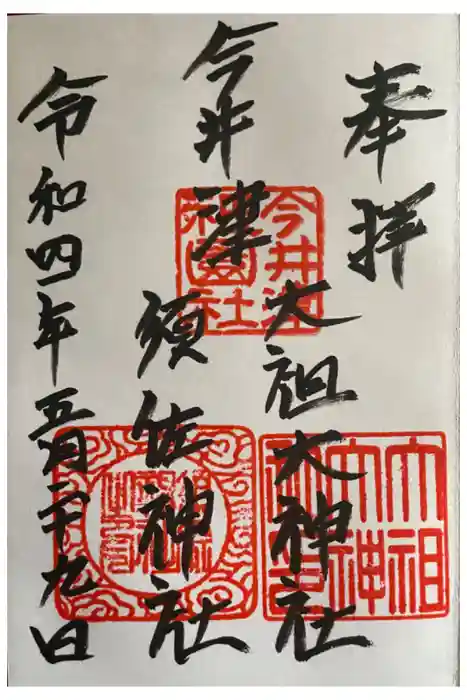 奉拝
今井津
大祖大神社
須佐神社
令和四年五月二十九日
今井津
祇園社
大祖
大神